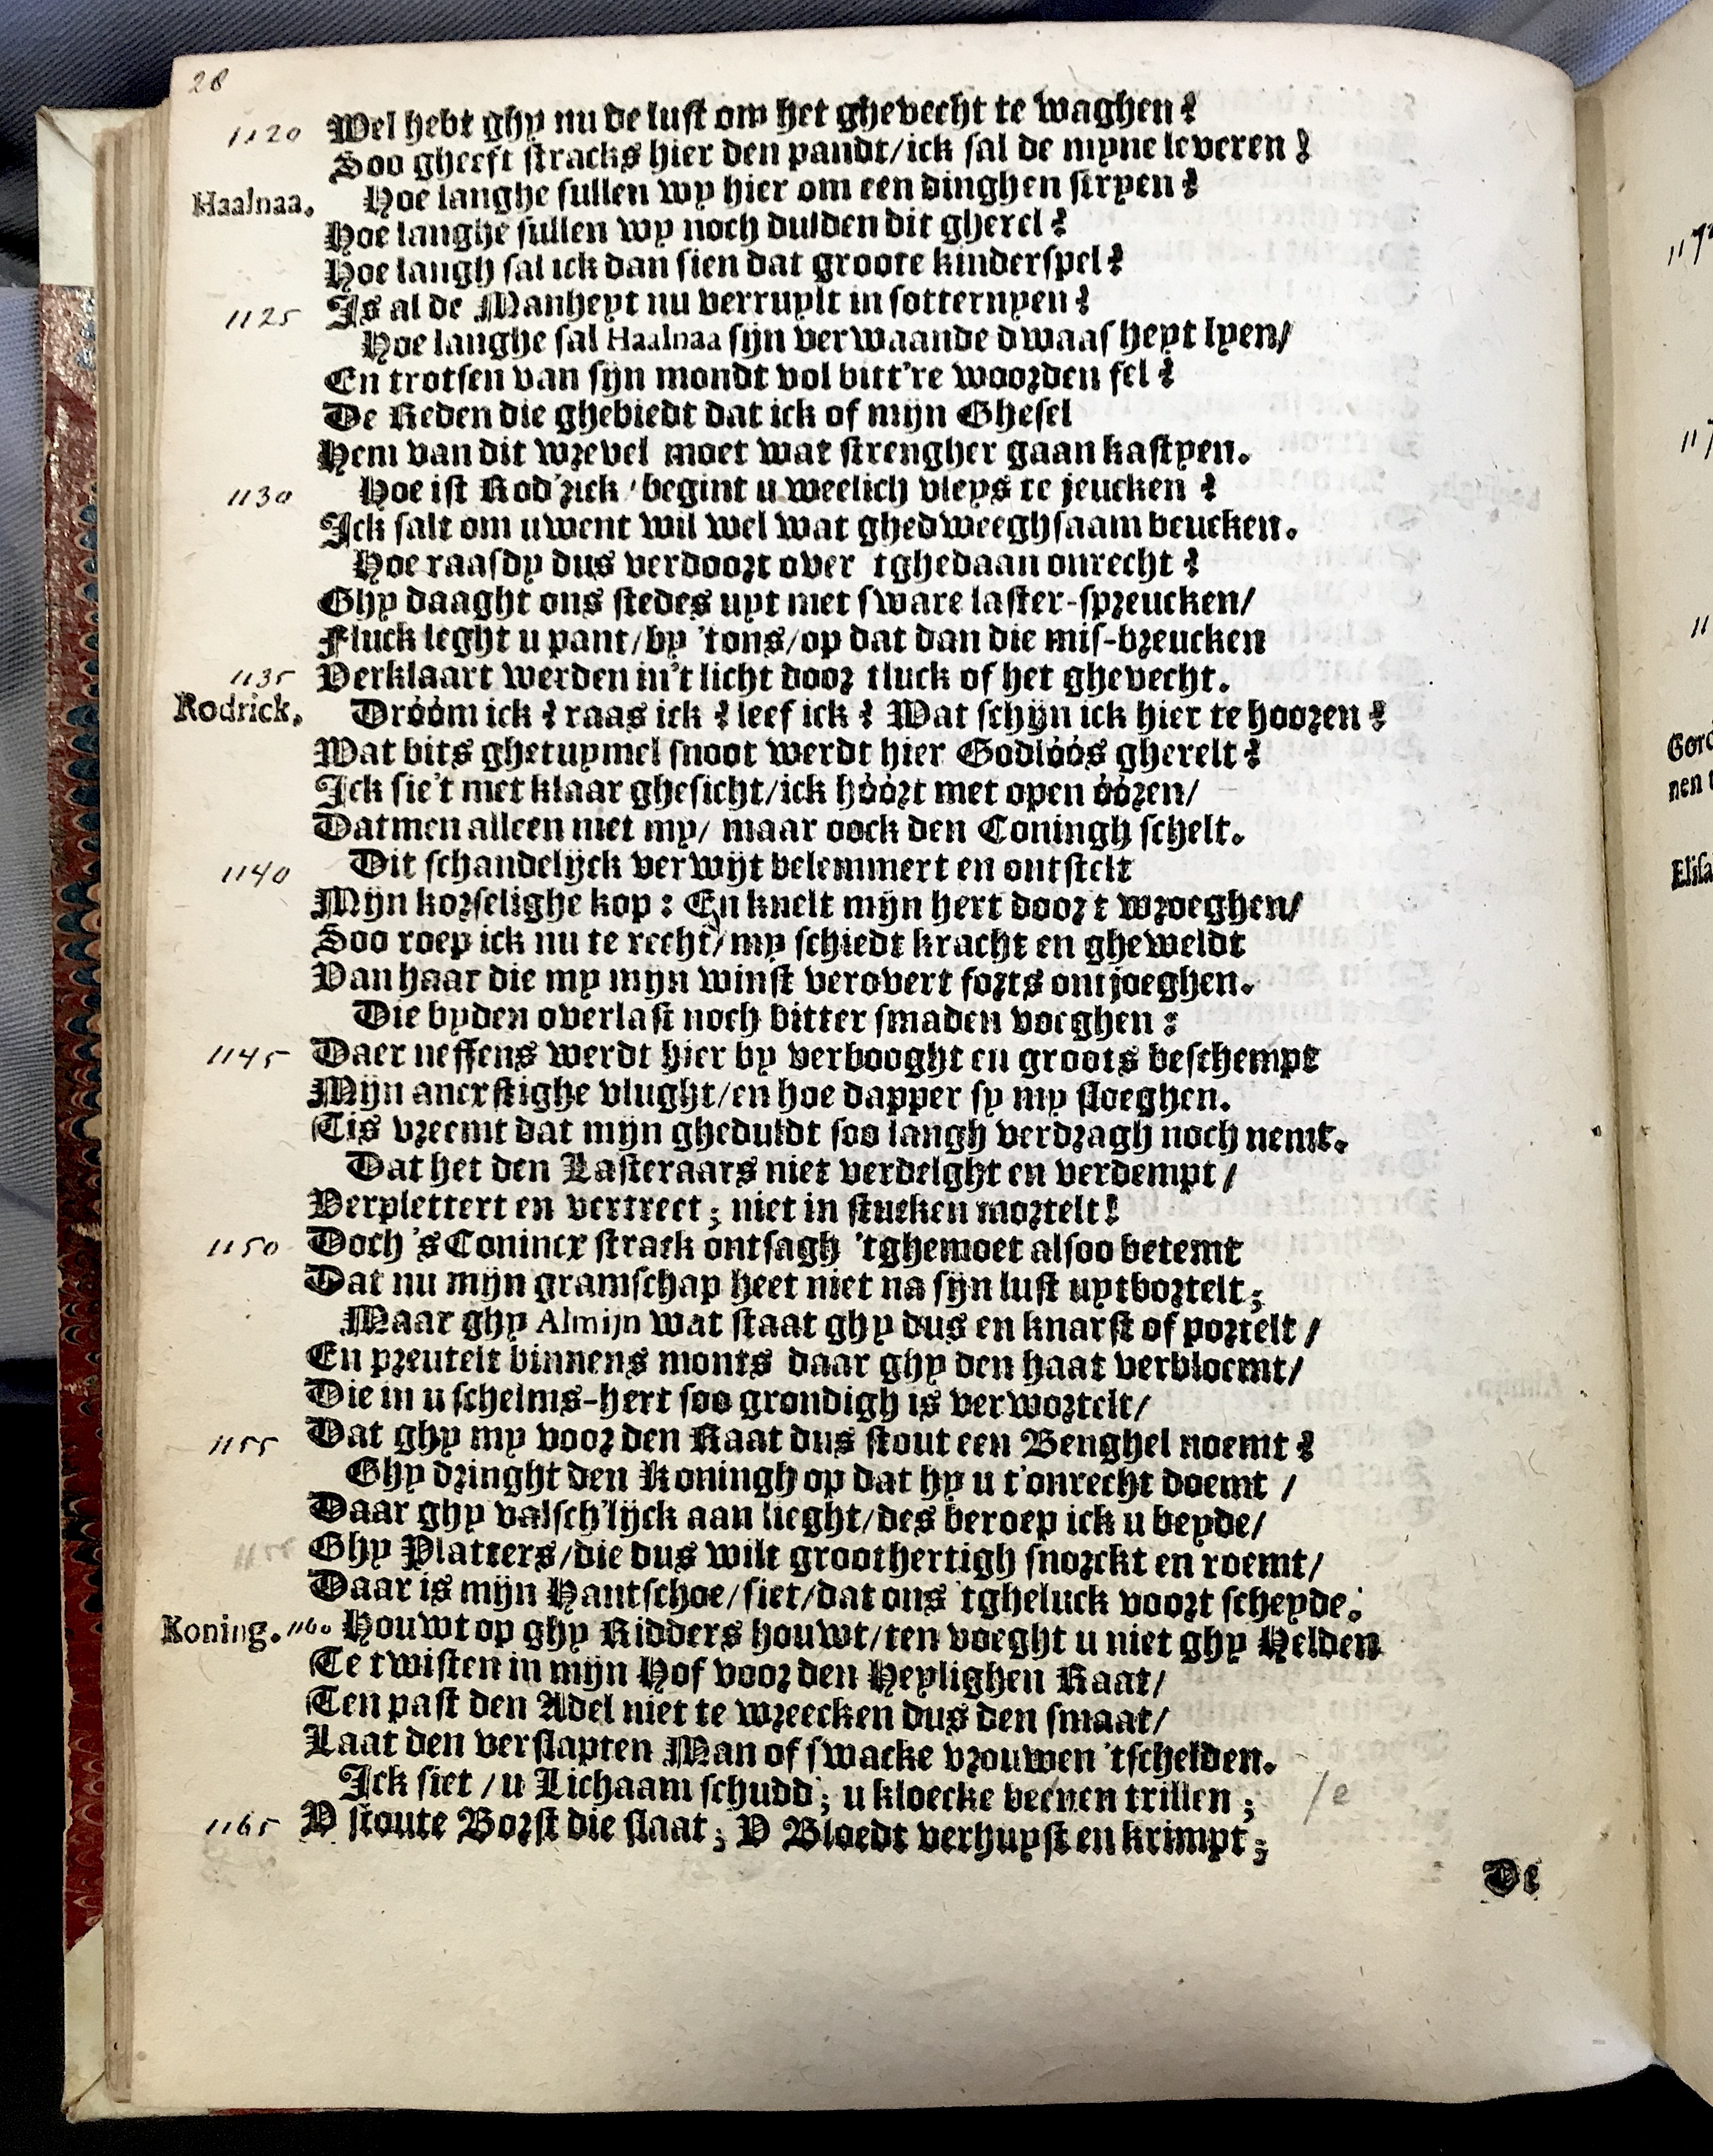 28
1120 Wel hebt ghy nu de lust om het ghevecht te waghen?
Soo gheeft stracks hier den pandt/ick sal de myne leveren!
Haalnaa. Hoe langhe sullen wy hier om een dinghen stryen?
Hoe langhe sullen wy noch dulden dit gherel?
Hoe langh sal ick dan sien dat groote kinderspel?
1125 Is al de Manheyt nu verruylt in sotternyen?
Hoe langhe sal Haalnaa sijn verwaande dwaasheyt lyen/
En trotsen van sijn mondt vol bitt're woorden fel?
De Reden die ghebiedt dat ick of mijn Ghesel
Hem van dit wrevel moet wat strengher gaan kastyen.
1130 Hoe ist Rod'rick/begint u weelich vleys te jeucken?
Ick salt om uwent wil wel wat ghedweeghsaam beucken.
Hoe raasdy dus verdoort over tghedaan onrecht?
Ghy daaght ons stedes uyt met sware laster-spreucken/
Fluck leght u pant/by 'tons/op dat dan die mis-breucken
1135 Verklaart werden in't licht door tluck of het ghevecht.
Rodrick. Dróóm ick? raas ick? leef ick? Wat schijn ick hier te hooren?
Wat bits ghetuymel snoot werdt hier Godlóós gherelt?
Ick sie't met klaar ghesicht/ick hóórt met open óóren/
Datmen alleen niet my/ maar oock den Coningh schelt.
1140 Dit schandelijck verwijt belemmert en ontstelt
Mijn korselighe kop: En knelt mijn hert door t wroeghen/
Soo roep ick nu te recht/my schiedt kracht en gheweldt
Van haar die my mijn winst verovert forts ontjoeghen.
Die byden overlast noch bitter smaden voeghen:
1145 Daer neffens werdt hier by verbooght en groots beschempt
Mijn ancxstighe vlught/en hoe dapper sy my sloeghen.
Tis vreemt dat mijn gheduldt soo langh verdragh noch nemt.
Dat het den Lasteraars niet verdelght en verdempt/
Verplettert en vertreet; niet in stucken mortelt!
1150 Doch 's Conincx strack ontsagh 'tghemoet alsoo betemt
Dat nu mijn gramschap heet niet na sijn lust uytbortelt;
Maar ghy Almijn wat staat ghy dus en knarst of portelt/
En preutelt binnens monts daar ghy den haat verbloemt/
Die in u schelms-hert soo grondigh is verwortelt/
1155 Dat ghy my voor den Raat dus stout een Benghel noemt?
Ghy dringht den Koningh op dat hy u t'onrecht doemt/
Daar ghy valsch'lijck aan lieght/des beroep ick u beyde/
Ghy Platters/die dus wilt groothertigh snorckt en roemt/
Daar is mijn Hantschoe/siet/dat ons tgheluck voort scheyde.
Koning. 1160 Houwt op ghy Ridders houwt/ten voeght u niet ghy Helden
Te twisten in mijn Hof voor den Heylighen Raat/
Ten past den Adel niet te wreecken dus den smaat/
Laat den verslapten Man of swacke vrouwen 'tschelden.
Ick siet/u Lichaam schudd; u kloecke beenen trillen; /e
1165 V stoute Borst die slaat; V Bloedt verhupst en krimpt;
De